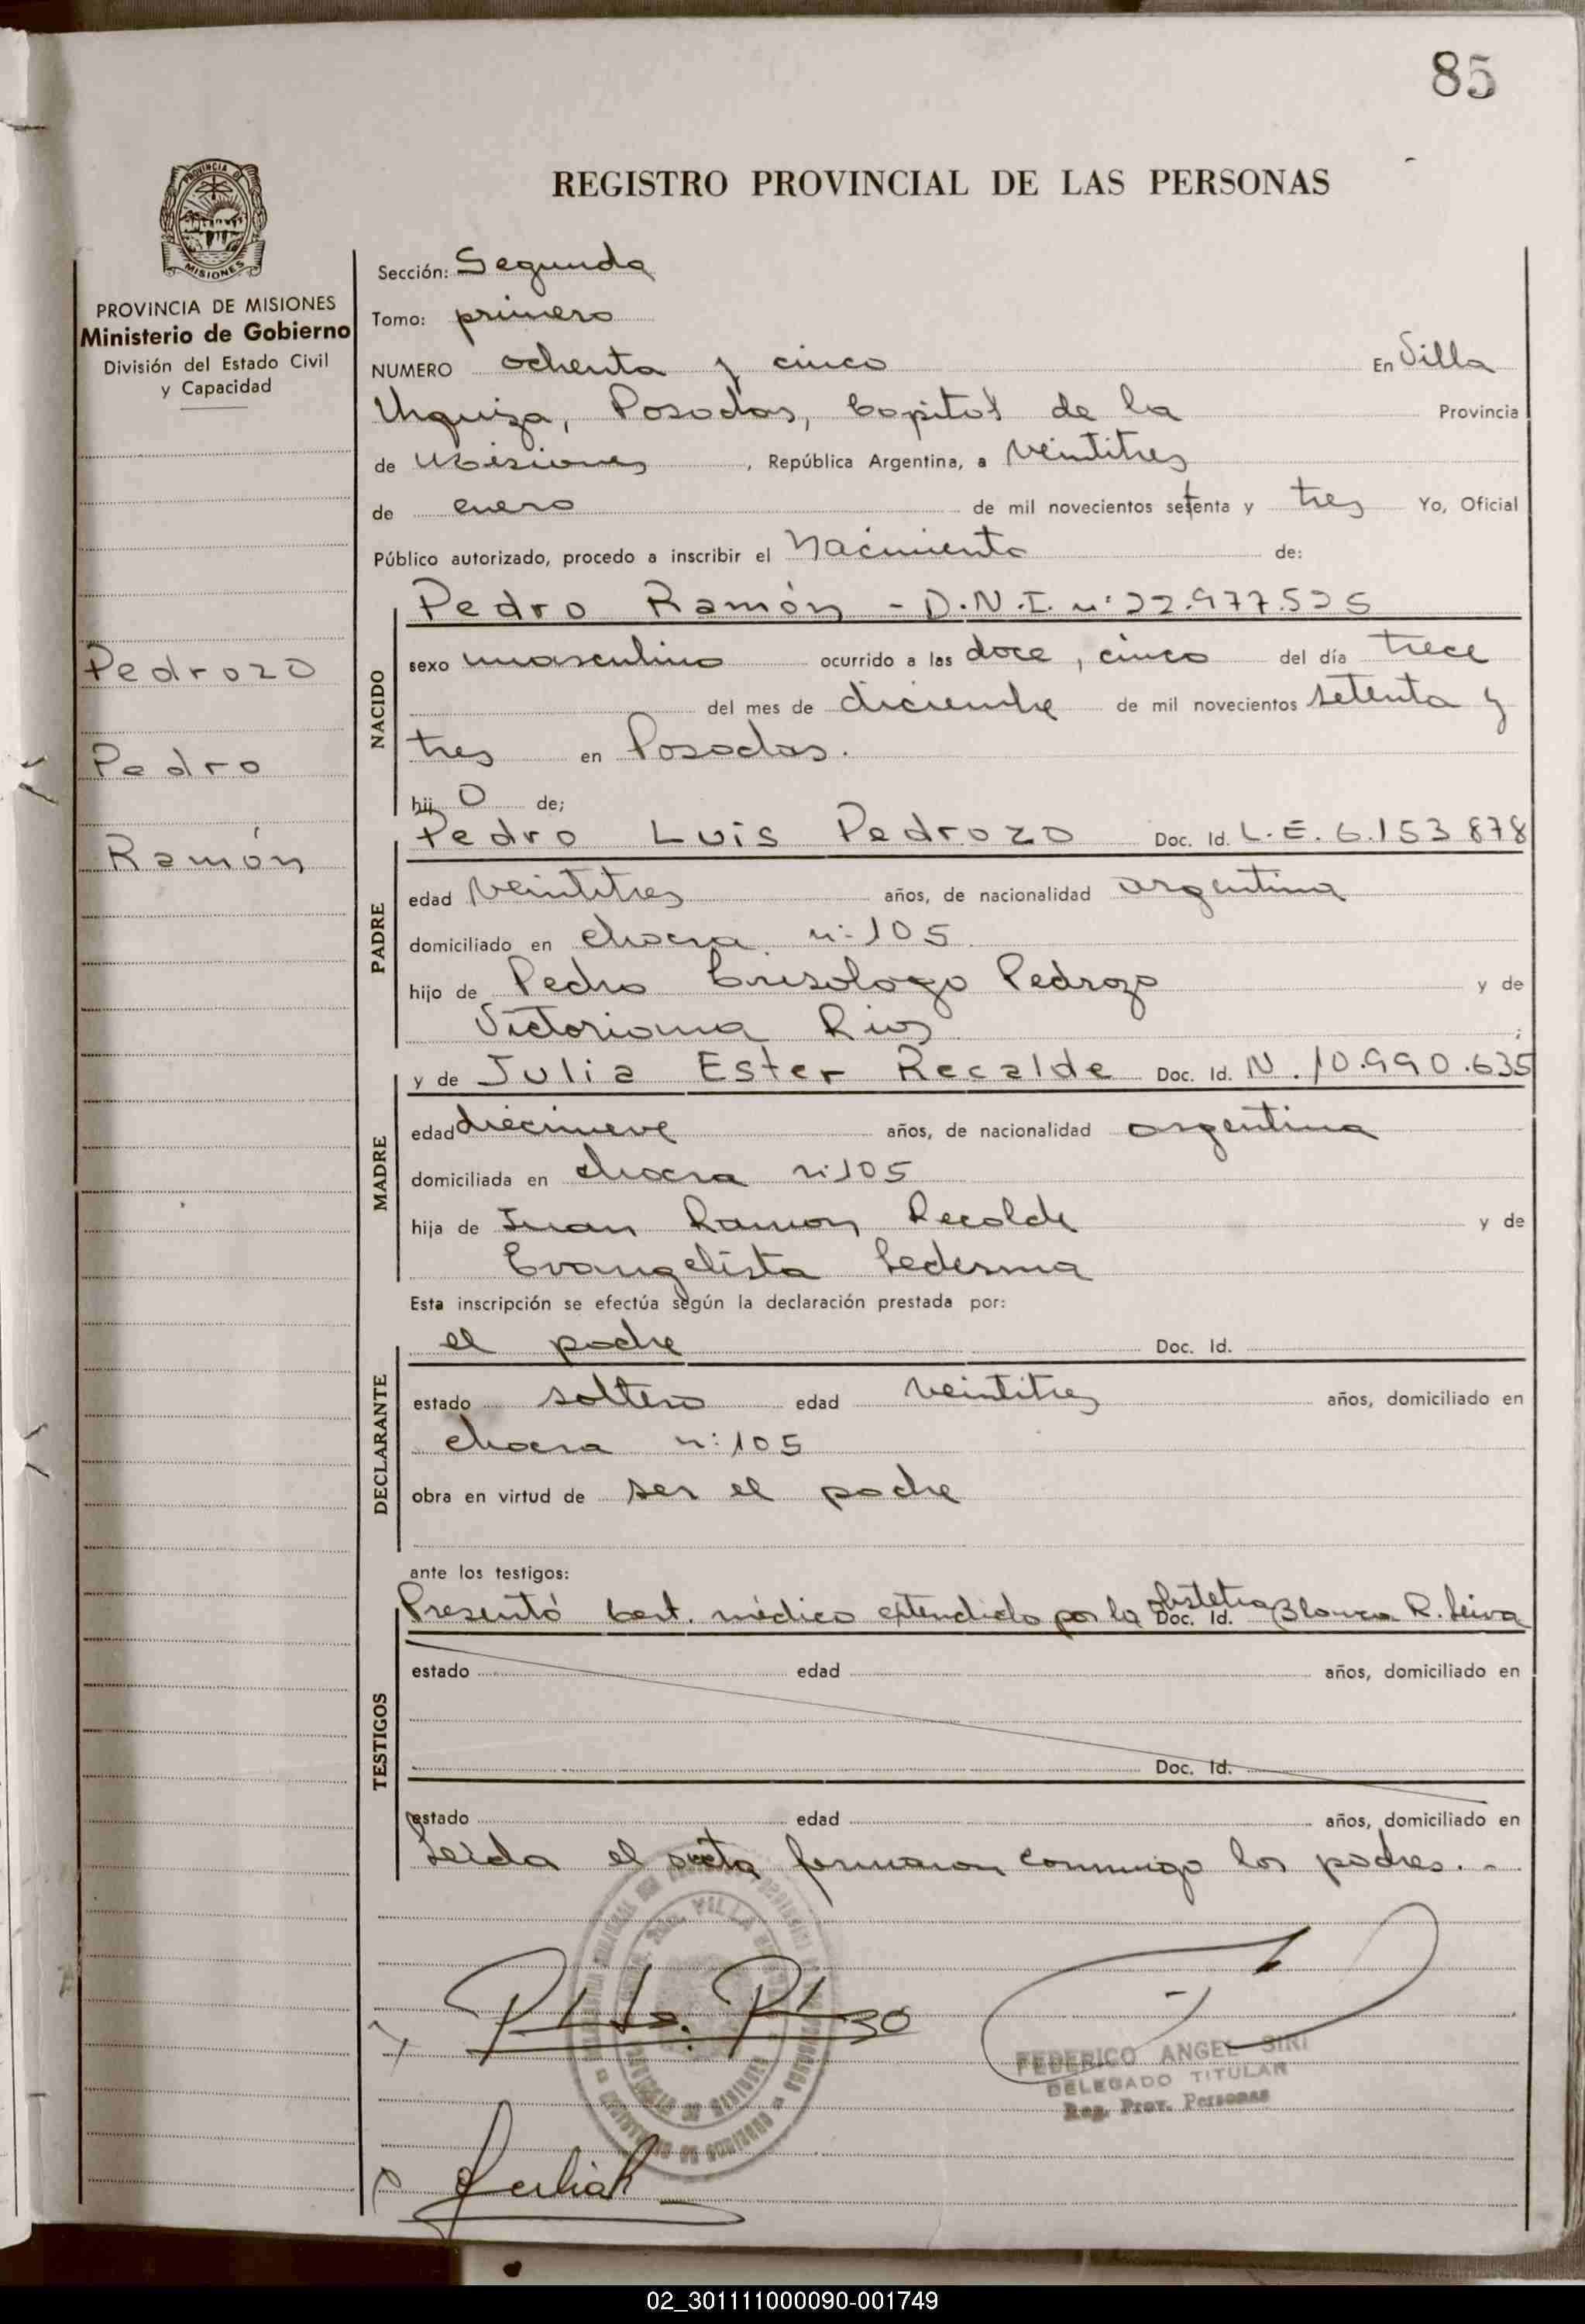 85
REGISTRO PROVINCIAL DE LAS PERSONAS
PROVINCIA DE MISIONES
PROVINCIA DE MISIONES
Ministerio de Gobierno
División del Estado Civil
y Capacidad
Sección: Segunda
Tomo: primero
NUMERO ochenta y cinco En Villa
Urquiza, Posadas, Capital de la Provincia
de Misiones, República Argentina, a veintitres
de enero de mil novecientos setenta y tres Yo, Oficial
Público autorizado, procedo a inscribir el Nacimiento de:
Pedrozo
Pedro
Ramón
NACIDO
Pedro Ramón - D.N.I. nº 22.977.525
sexo masculino ocurrido a las doce, cinco del día trece
del mes de diciembre de mil novecientos setenta y
tres en Posadas.
hijo de;
PADRE
Pedro Luis Pedrozo Doc. Id. L.E. 6.153 878
edad veintitres años, de nacionalidad argentina
domiciliado en chacra nº 105
hijo de Pedro Crisologo Pedrozo y de
Victoriana Rios ;
MADRE
y de Julia Ester Recalde Doc. Id. N. 10.990.635
edad diecinueve años, de nacionalidad argentina
domiciliada en chacra nº 105
hija de Juan Ramon Recalde y de
Evangelista Ledesma
Esta inscripción se efectúa según la declaración prestada por:
DECLARANTE
el padre Doc. Id.
estado soltero edad veintitres años, domiciliado en
chacra nº 105
obra en virtud de ser el padre
ante los testigos:
TESTIGOS
Presentó Cert. médico extendido por la obstetra Doc. Id. Blanca R. Leiva
estado edad años, domiciliado en
Doc. Id.
estado edad años, domiciliado en
Leida el acta firmaron conmigo los padres. -
FEDERICO ANGEL SIRI
DELEGADO TITULAR
Reg. Prov. Personas
02_301111000090-001749